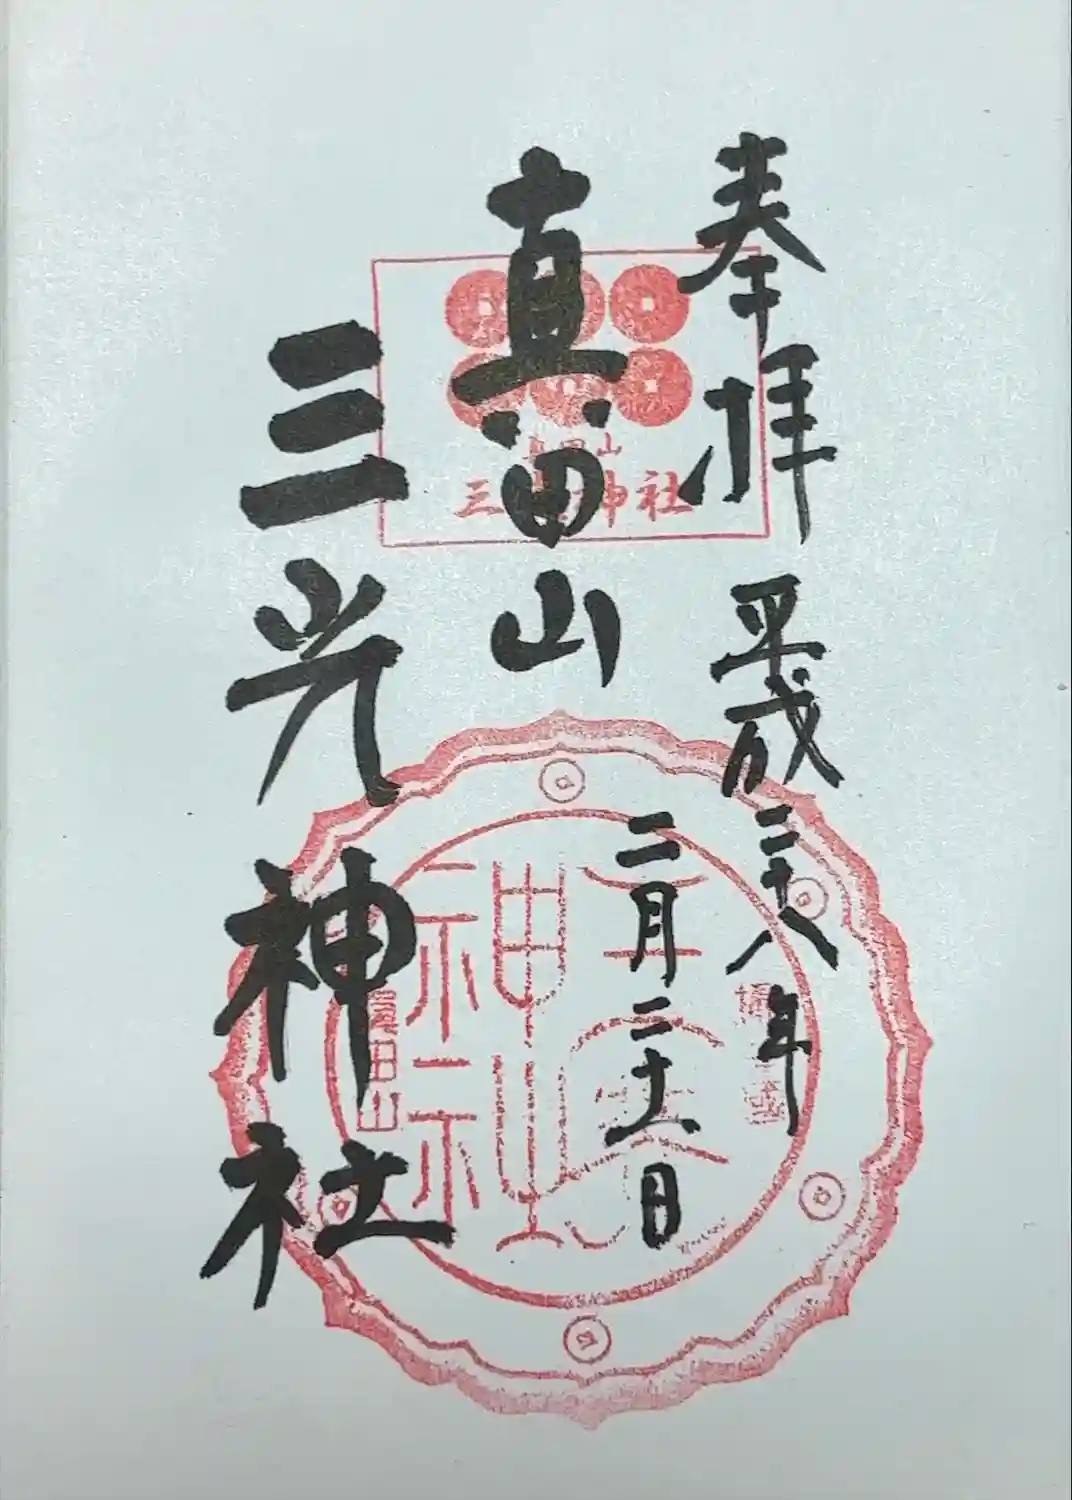 奉拝
平成二十八年
二月二十一日
真田山
三光神社
真田山
三光神社